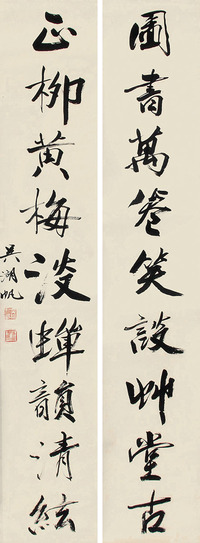 圖書萬卷笑設艸堂古
正柳黃梅蟬韻清絃
吳湖帆